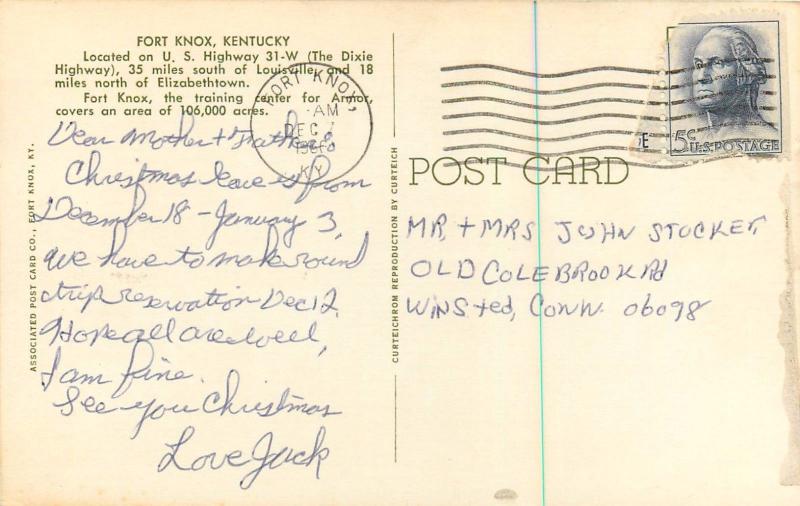 FORT KNOX, KENTUCKY
Located on U. S. Highway 31-W (The Dixie
Highway), 35 miles south of Louisville, and 18
miles north of Elizabethtown.
Fort Knox, the training center for Armor,
covers an area of 106,000 acres.
Dear Mother + Father,
Christmas leave is from
December 18 - January 3,
we have to make round
trip reservation Dec 12.
Hope all are well,
I am fine.
See you Christmas
Love Jack
ASSOCIATED POST CARD CO., FORT KNOX, KY.
CURTEICHROM REPRODUCTION BY CURTEICH
FORT KNOX,
AM
DEC
KY
5¢
U.S. POSTAGE
E
POST CARD
MR, + MRS JOHN STOCKER
OLD COLEBROOK Rd
WINSted, CONN. 06098